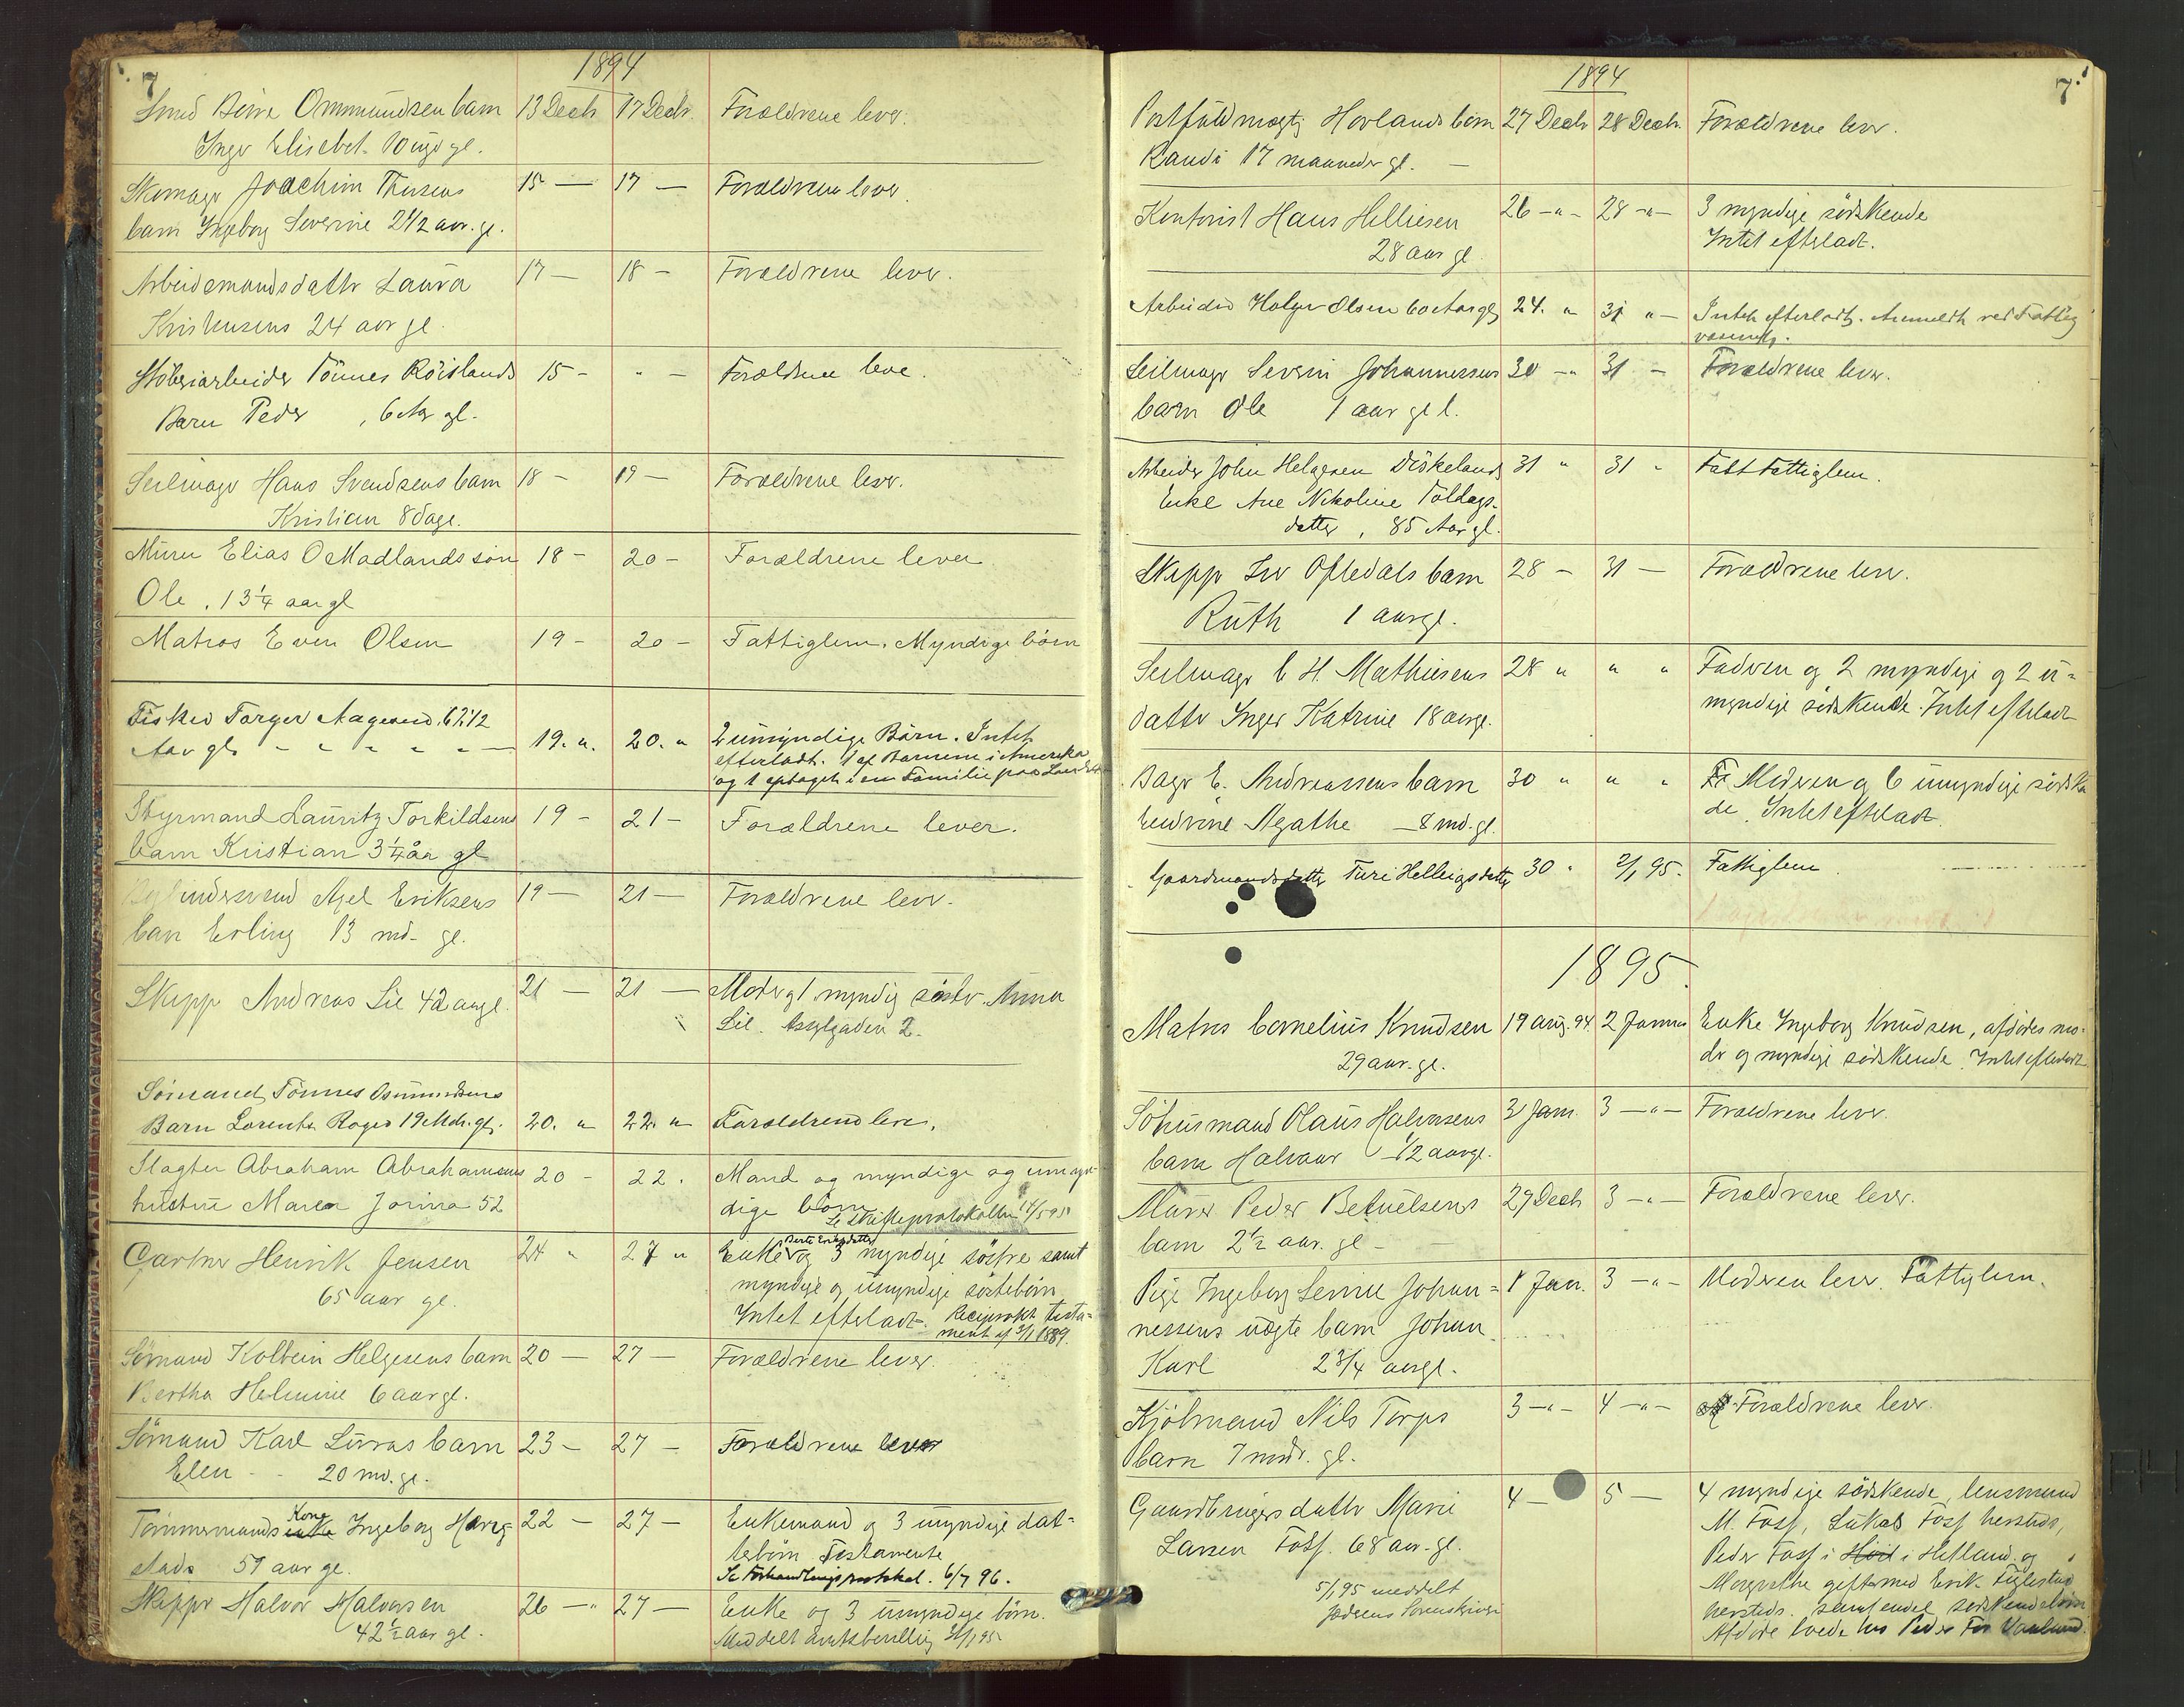 7
1894
Smed Børre Ommundsen barn 13 Decbr 17 Decbr. Forældrene lever.
Inger Elisebet 10 uger gl.
Skomager Joachim Thusens 15 — 17 — Forældrene lever.
barn Ingeborg Severine 2 1/2 aar. gl.
Arbeidsmandsdatter Laura 17 — 18 — Forældrene lever.
Kristensens 24 aar gl.
Støberiarbeider Tönnes Röislands 15 - " - Forældrene leve.
Barn Peder , 6 Aar gl.
Seilmager Hans Svendsens barn 18 - 19 — Forældrene lever.
Kristian 8 dage.
Murer Elias O Madlands søn 18 - 20 - Forældrene lever
Ole , 13 1/4 aar gl
Matros Even Olsen 19 - 20 - Fattiglem. Myndige børn
Fisker Torger Aagesend. 67 1/2
Aar gl. - " - " - " - 19. " 20. " 2 umyndige Børn. Intet
efterladt. 1 af Barnene i Amerika
og 1 optaget i en Familie paa Landet
Styrmand Lauritz Torkildsens 19 - 21 - Forældrene lever.
barn Kristian 3 1/4 aar gl
Axel Eriksens 19 — 21 — Forældrene lever.
barn Erling 13 md. gl.
Skipper Andreas Lie 42 aar gl. 21 — 21 — Moder og 1 myndig søster Anna
Lie. Asylgaden 2.
Sömand Tönnes Osmundsens
Barn Lorents Roger 19 Mdr. gl. 20. " 22. " Forældrene leve.
Slagter Abraham Abrahamsens 20 - 22. Mand og myndige og umyn-
hustru Maren Jorina 52 dige børn
Se Skifteprotokollen 14/5 95
Gartner Henrik Jensen 24 " 27 " Enke Berte Eriksdatter og 3 myndige søstre samt
65 aar gl. myndige og umyndige søsterbørn
Intet efterladt. Reciprokt testa-
ment af 3/1 1889.
Sømand Kolbein Helgesens barn 20 — 27 — Forældrene lever.
Bertha Helmine 6 aar gl.
Sømand Karl Luras barn 23 — 27 — Forældrene lever
Elen - - 20 md. gl.
Tømmermands Kone enke Ingeborg Haug- 22 — 27 — Enkemand og 3 umyndige dat-
stads 59 aar gl. terbørn Testamente
Se Forhandlingsprotokol. 6/7 96.
Skipper Halvor Halvorsen 26 — " 27 — Enke og 3 umyndige børn.
42 1/2 aar gl. Meddelt amtsbevilling
1894
7
Postfuldmægtig Hovlands barn 27 Decbr 28 Decbr. Forældrene lever.
Randi 17 maaneder gl. —
Kontorist Hans Helliesen 26 — " — 28 — " — 3 myndige sødskende
28 aar gl. Intet efterladt.
Arbeider Holger Olsen 60 Aar gl. 24. " 31 " — Intet efterladt. Anmeldt ved Fattig
væsenet.
Seilmager Severin Johannessens 30 — " 31 — Forældrene lever.
barn Ole 1 aar gl.
Arbeider John Helgesen Diskelands 31 " 31 " Fast Fattiglem.
Enke Ane Nikoline Tollags-
datter , 85 Aar gl.
Skipper Iver Oftedals barn 28 — 31 — Forældrene lever.
Ruth 1 aar gl.
Seilmager C H. Mathiesens 28 " " " Faderen og 2 myndige og 2 u-
datter Inger Katrine 18 aar gl. myndige sødskende. Intet efterladt
Bager E. Andreassens barn 30 " " " Moderen og 6 umyndige sødsken
Agathe — 8 md. gl. de. Intet efterladt.
Gaardmandsdatter Turi Helleigsdatter 30 " 2/1 95. Fattiglem.
1895.
Matros Cornelius Knudsen 19 aug. 94. 2 Januar Enke Ingeborg Knudsen, afdødes mo-
29 aar. gl. der og myndige sødskende. Intet efterladt
Söhusmand Olaus Halvorsens 3 Jan. 3 — " — Forældrene lever.
barn Halvor 1/2 aar gl.
Murer Peder Betuelsens 29 Decbr 3 — " — Forældrene lever.
barn 2 1/2 aar. gl —
Pige Ingeborg Serine Johan- 1 Jan. 3 — " — Moderen lever. Fattiglem.
nessens uægte barn Johan
Karl 2 3/4 aar gl.
Kjøbmand Nils Torps 3 — " — 4 — " — Forældrene lever.
barn 7 mdr. gl.
Gaardbrugersdatter Marie 4 — 5 — 4 myndige sødskende, lensmand
Larsen Foss. 68 aar. gl. M. Foss, Lukas Foss hersteds,
Peder Foss i Høie i Hetland og
5/1 95 meddelt Margrethe gift med Erik Fuglestad
Jæderens Sorenskriver hersteds. samt endel sødskendebørn
Afdøde boede hos Peder Foss